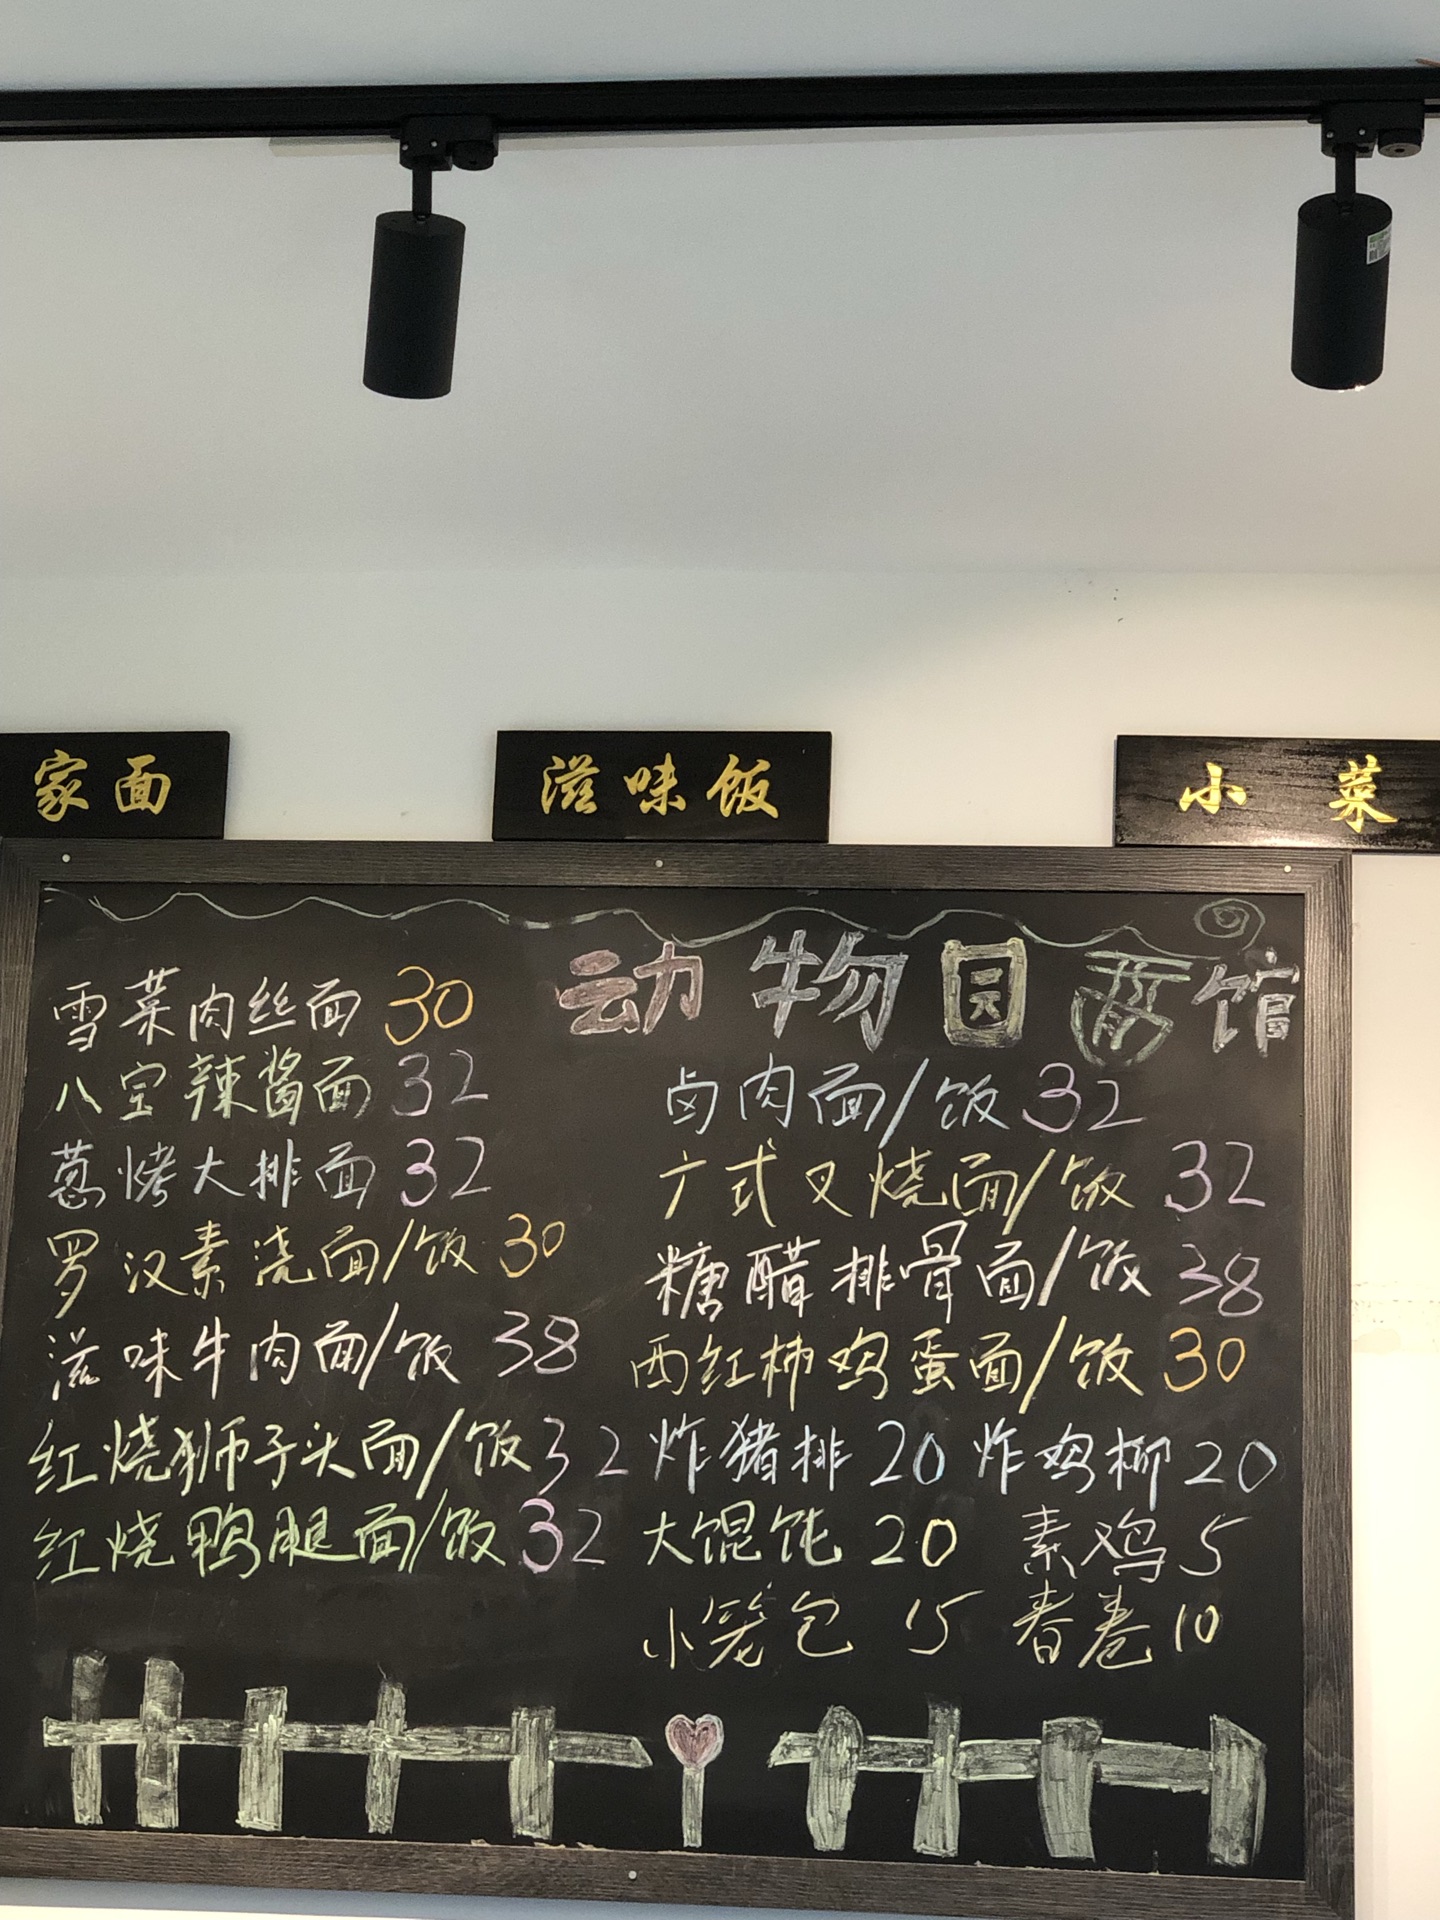 家面
滋味饭
小菜
动物园面馆
雪菜肉丝面 30
八宝辣酱面 32
葱烤大排面 32
罗汉素浇面/饭 30
滋味牛肉面/饭 38
红烧狮子头面/饭 32
红烧鸭腿面/饭 32
卤肉面/饭 32
广式叉烧面/饭 32
糖醋排骨面/饭 38
西红柿鸡蛋面/饭 30
炸猪排 20 炸鸡柳 20
大馄饨 20 素鸡 5
小笼包 15 春卷 10